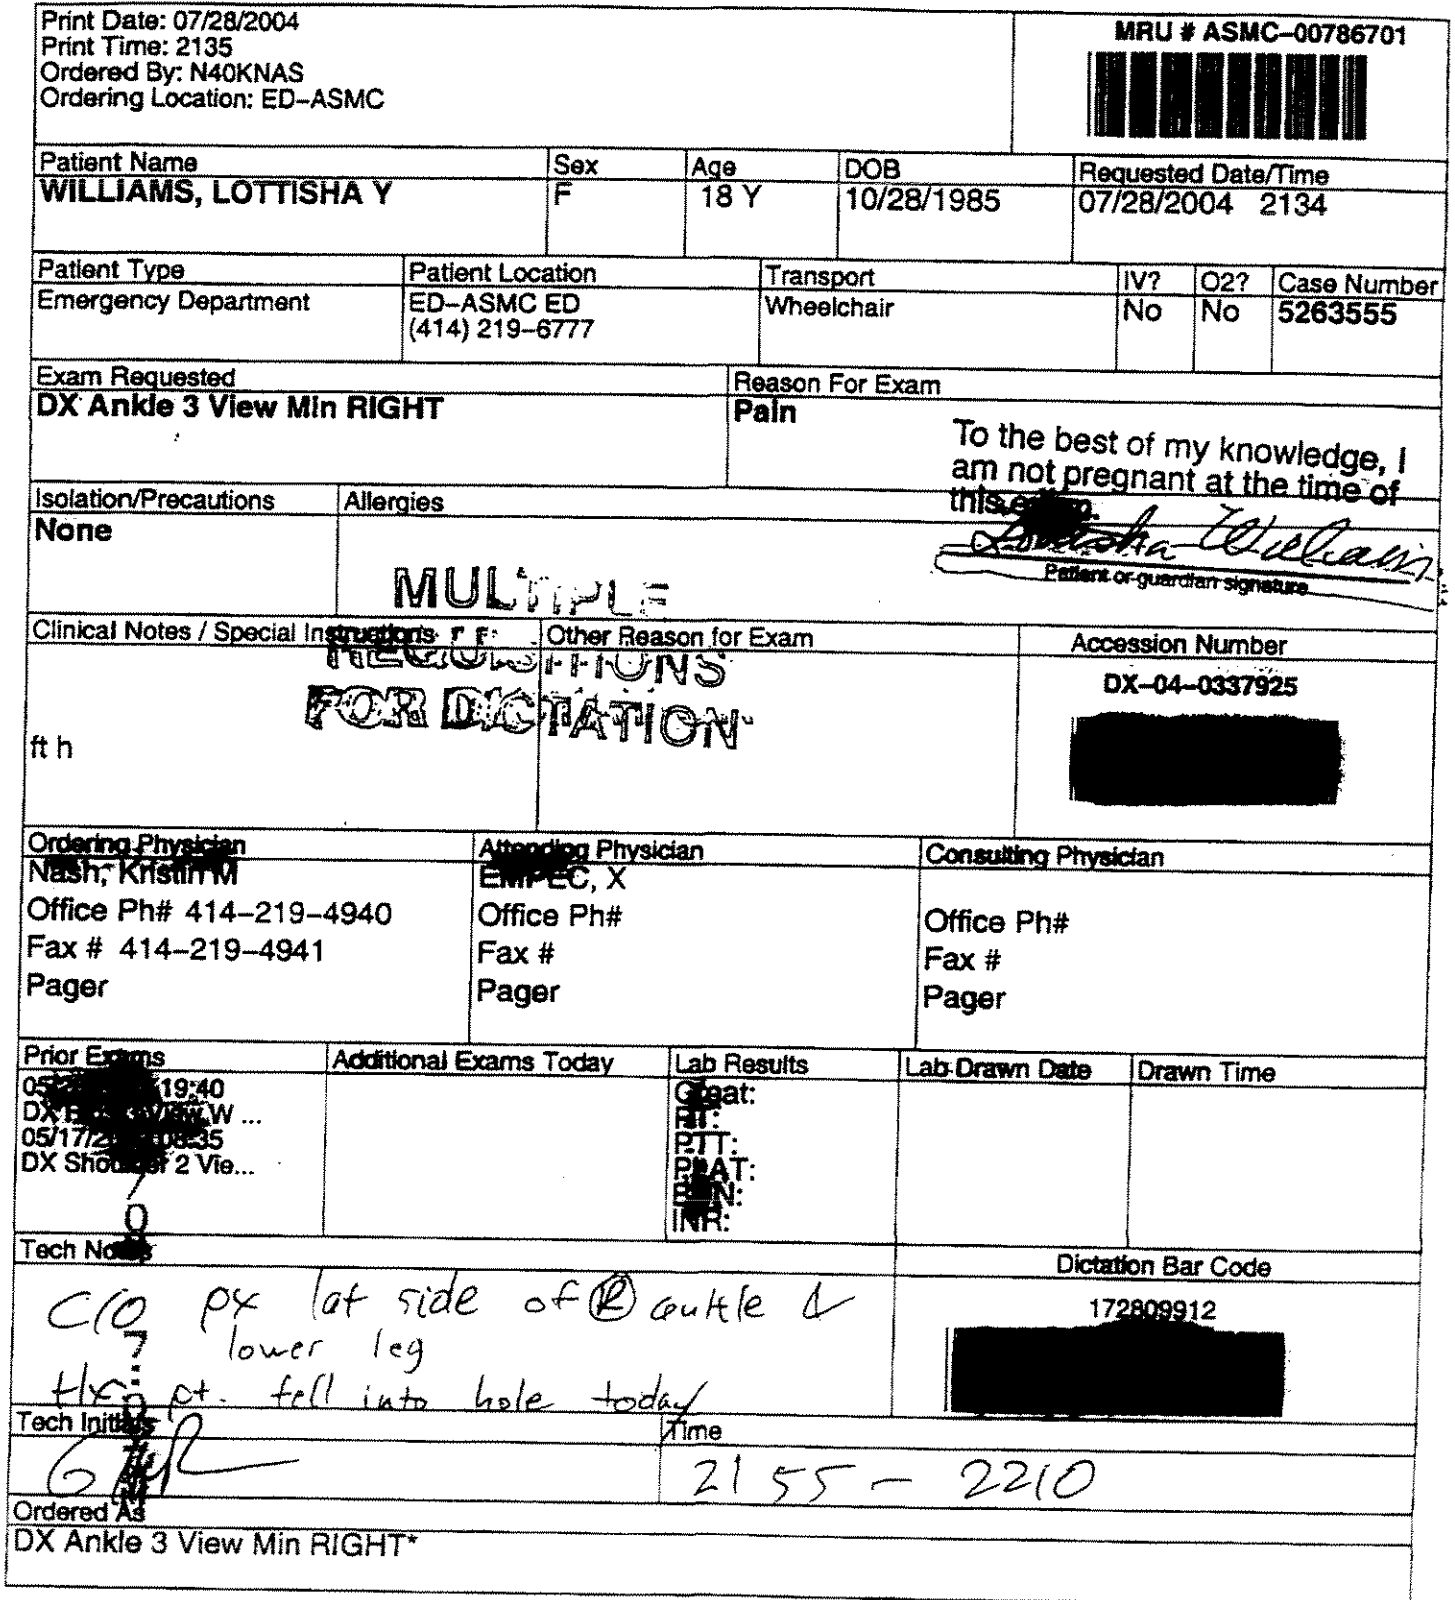 Print Date: 07/28/2004
Print Time: 2135
Ordered By: N40KNAS
Ordering Location: ED-ASMC
MRU # ASMC-00786701
Patient Name
WILLIAMS, LOTTISHA Y
Sex
F
Age
18 Y
DOB
10/28/1985
Requested Date/Time
07/28/2004 2134
Patient Type
Emergency Department
Patient Location
ED-ASMC ED
(414) 219-6777
Transport
Wheelchair
IV?
No
O2?
No
Case Number
5263555
Exam Requested
DX Ankle 3 View Min RIGHT
Reason For Exam
Pain
To the best of my knowledge, I
am not pregnant at the time of
this
Williams
Patient or guardian signature
Isolation/Precautions
None
Allergies
MULTIPLE
REQUISITIONS
FOR DICTATION
Clinical Notes / Special Instructions
ft h
Other Reason for Exam
Accession Number
DX-04-0337925
Ordering Physician
Nash, Kristin M
Office Ph# 414-219-4940
Fax # 414-219-4941
Pager
Attending Physician
X
Office Ph#
Fax #
Pager
Consulting Physician
Office Ph#
Fax #
Pager
Prior Exams
19:40
DX W ...
DX Shoulder 2 Vie...
Additional Exams Today
Lab Results
Creat:
PT:
PTT:
PLAT:
BUN:
INR:
Lab Drawn Date
Drawn Time
Tech Notes
C/O px lat side of Ⓡ ankle &
lower leg
Hx: pt. fell into hole today
Dictation Bar Code
172809912
Tech Initials
Time
2155 - 2210
Ordered As
DX Ankle 3 View Min RIGHT*